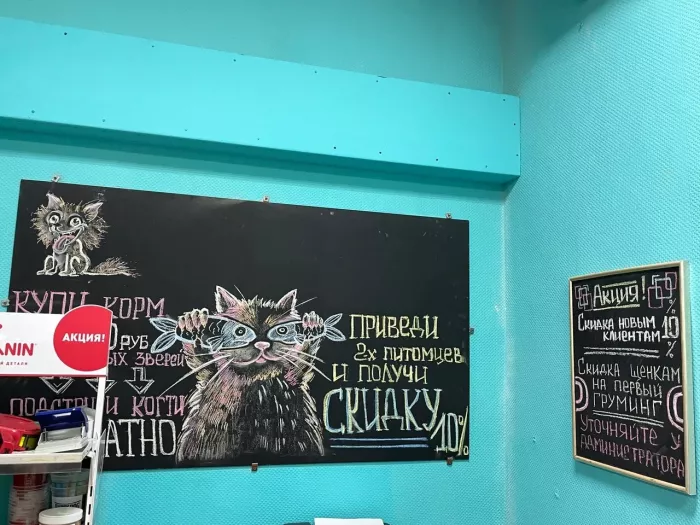 КУПИ КОРМ
0 РУБ
ЫХ ЗВЕРЕЙ
ПОДСТРИ И КОГТИ
АТНО
NIN®
АКЦИЯ!
ПРИВЕДИ
2х ПИТОМЦЕВ
И ПОЛУЧИ
СКИДКУ
10%
Акция!
СКИДКА НОВЫМ 10
КЛИЕНТАМ %
СКИДКА ЩЕНКАМ
НА ПЕРВЫЙ
ГРУМИНГ
УТОЧНЯЙТЕ У
АДМИНИСТРАТОРА